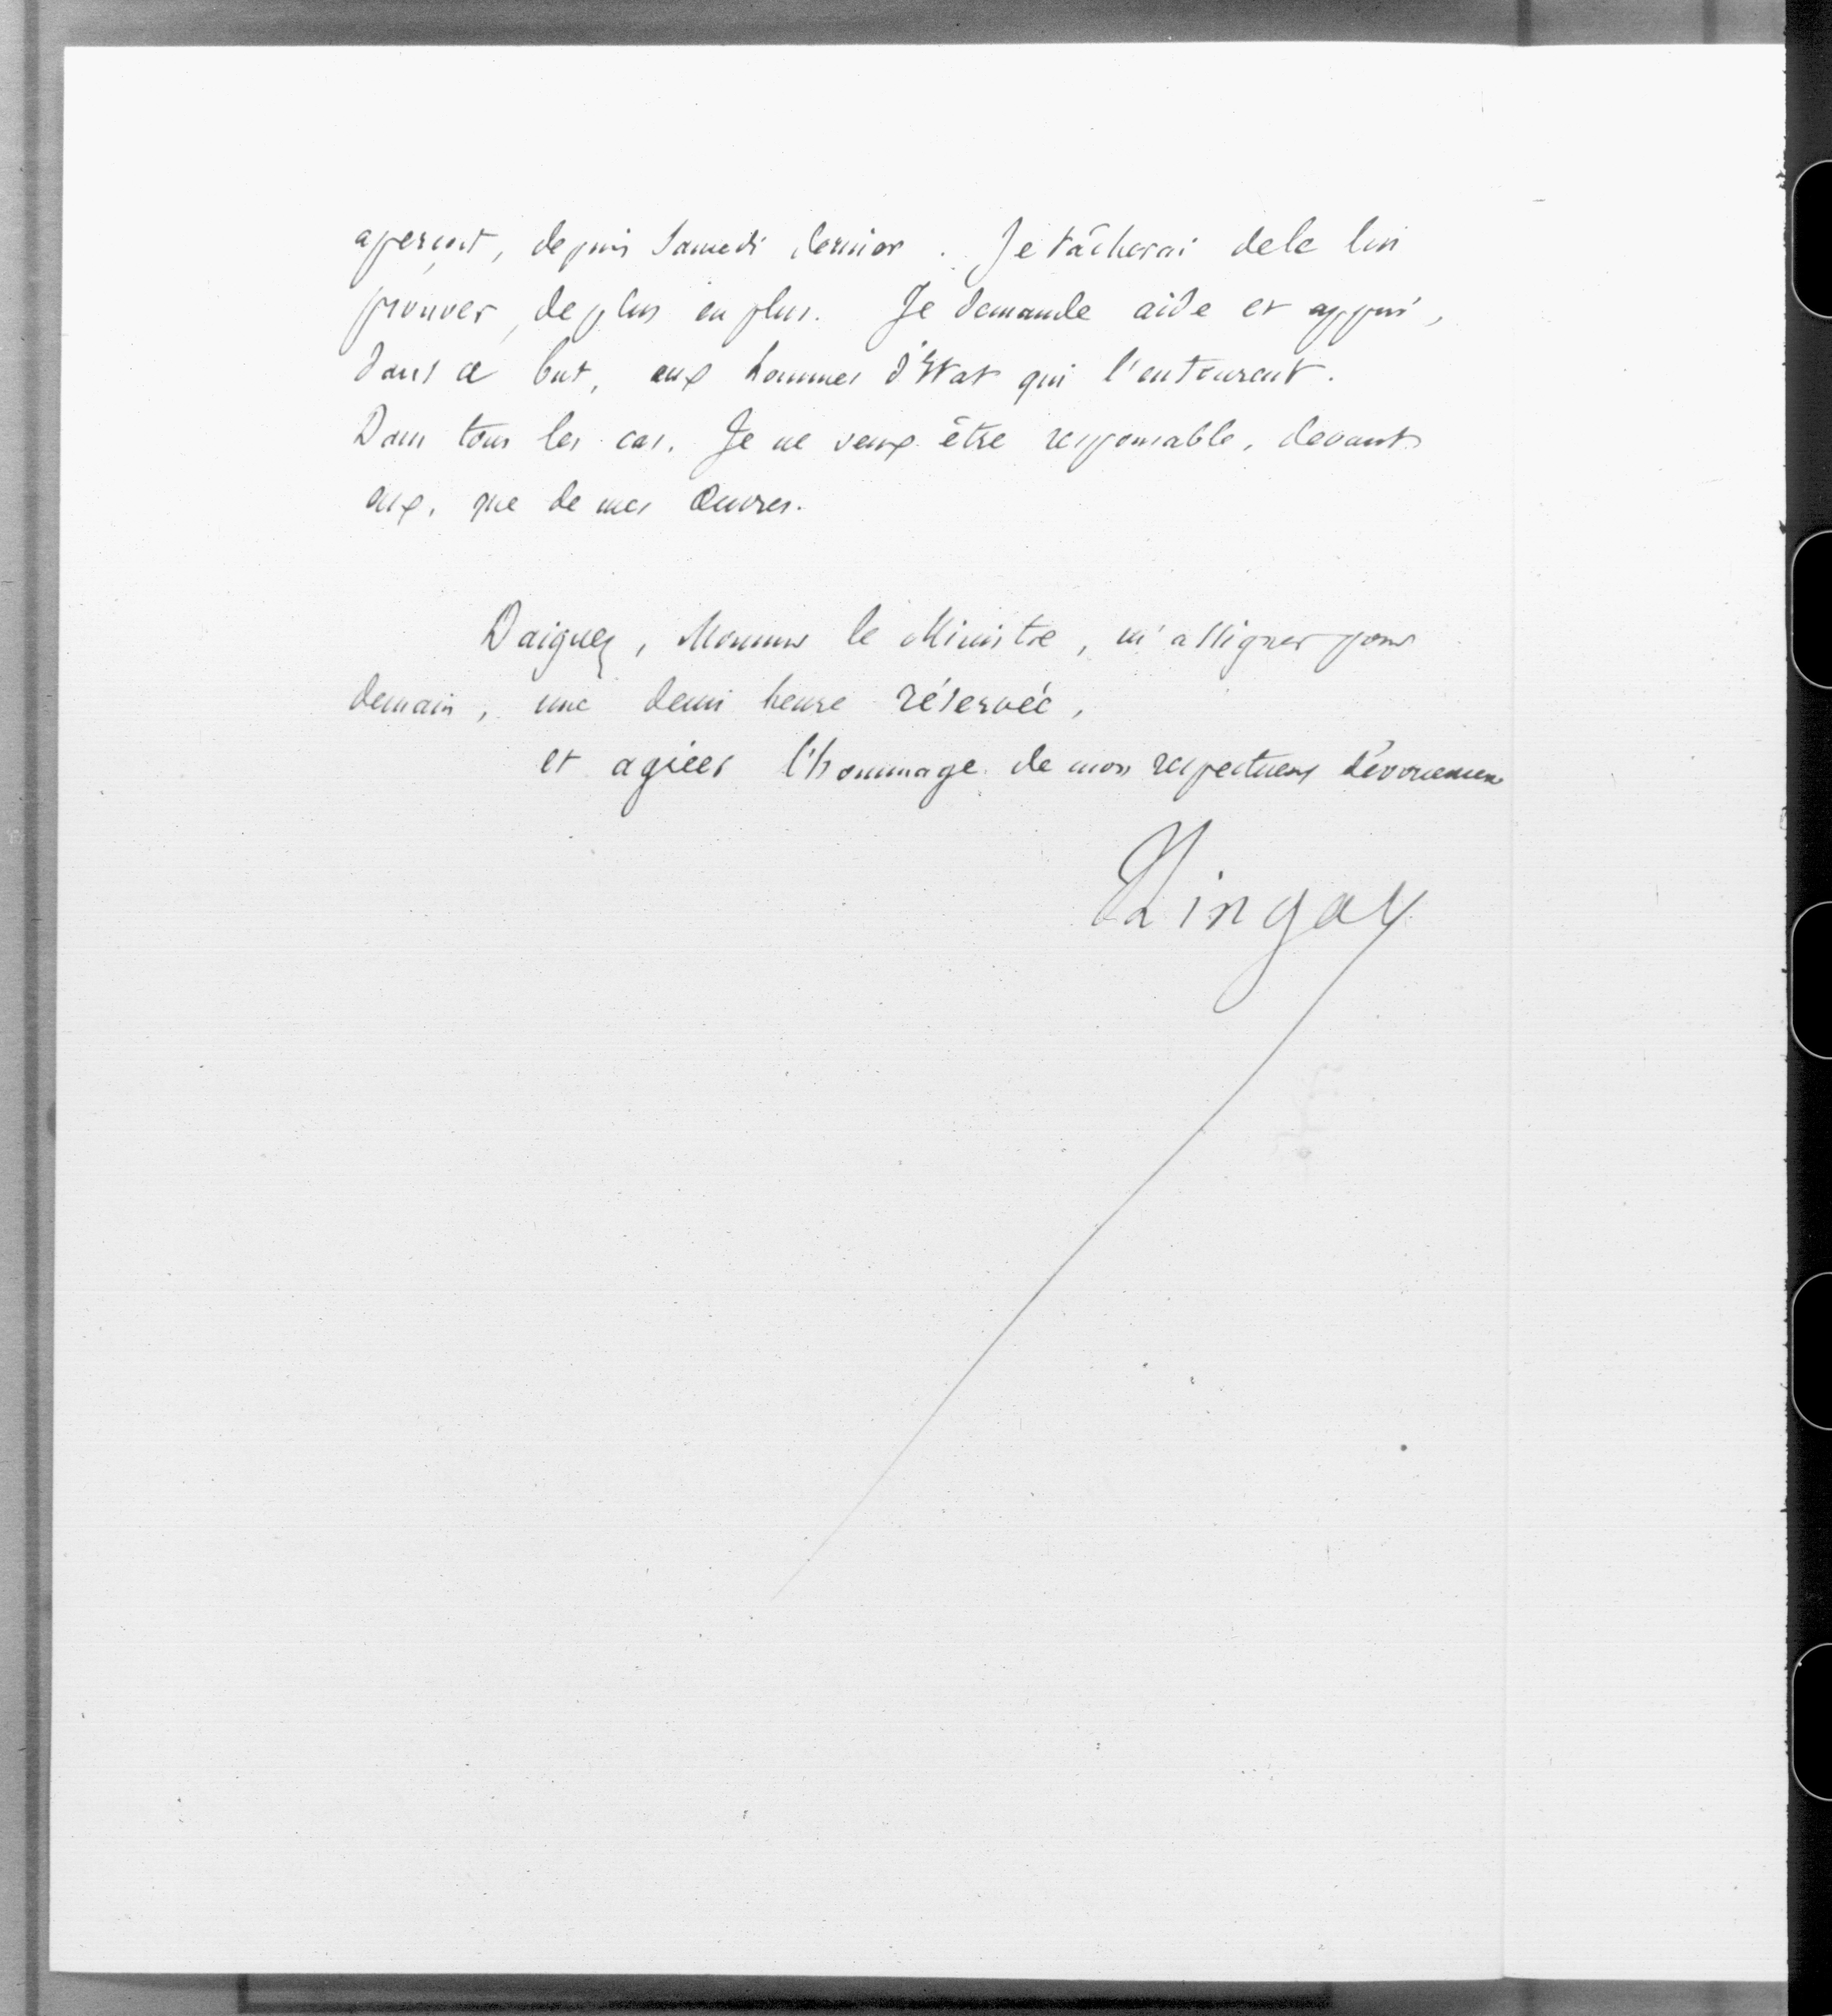 aperçoit, depuis Samedi dernier. Je tâcherai de le lui
prouver, de plus en plus. Je demande aide et appui,
dans ce but, aux hommes d'Etat qui l'entourent.
Dans tous les cas, Je ne veux être responsable, devant
eux, que de mes Œuvres.
Daignez, Monsieur le Ministre, m'assigner pour
demain, une demi heure réservée,
et agréer l'hommage de mon respectueux dévouement
Lingay